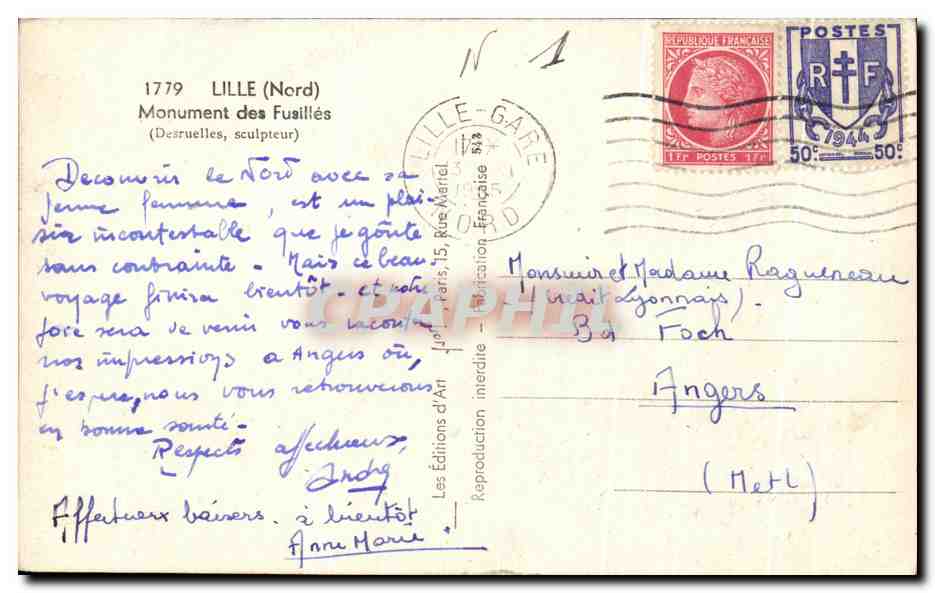 1779 LILLE (Nord)
Monument des Fusillés
(Desruelles, sculpteur)
Decouvrir le Nord avec sa
jeune femme, est un plai-
sir incontestable que je goûte
sans contrainte - Mais ce beau
voyage finira bientôt - et notre
joie sera de venir vous raconter
nos impressions à Angers où,
j'espère, nous vous retrouverons
en bonne santé -
Respects affectueux,
André
Affectueux baisers. à bientôt
Anne Marie
Les Éditions d'Art - Paris, 15, Rue Martel
Reproduction interdite - Fabrication Française
N 1
LILLE-GARE
NORD
RÉPUBLIQUE FRANÇAISE
1 Fr POSTES 1 Fr
POSTES
R F
1944
50c 50c
Monsieur et Madame Ragueneau
(Crédit Lyonnais).
Bd Foch
Angers
(M et L)
CPAPHIL